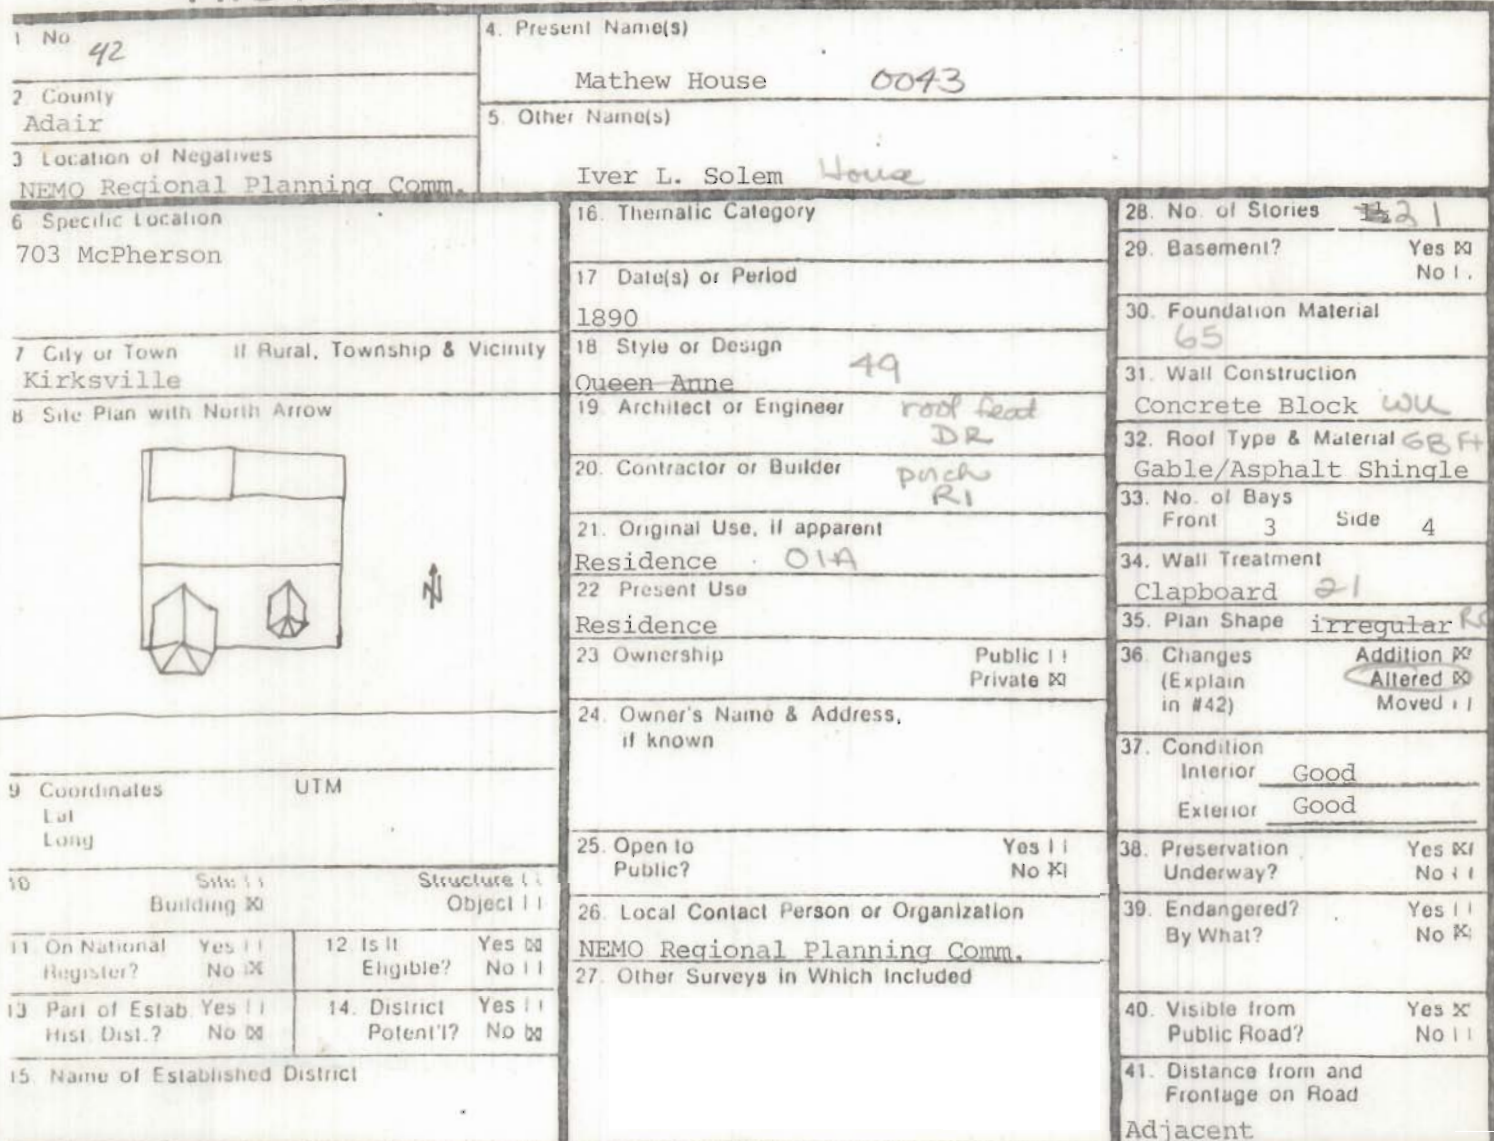 1 No
42
2 County
Adair
3 Location of Negatives
NEMO Regional Planning Comm.
4. Present Name(s)
Mathew House 0043
5. Other Name(s)
Iver L. Solem House
6 Specific Location
703 McPherson
7 City or Town If Rural, Township & Vicinity
Kirksville
8 Site Plan with North Arrow
N
9 Coordinates UTM
Lat
Long
10 Site Structure
Building ☒ Object
11. On National Register? Yes No ☒
12 Is It Eligible? Yes ☒ No
13 Part of Estab Hist. Dist.? Yes No ☒
14. District Potent'l? Yes No ☒
15. Name of Established District
16. Thematic Category
17 Date(s) or Period
1890
18 Style or Design
Queen Anne 49
19. Architect or Engineer roof feat
DR
20. Contractor or Builder porch
RI
21. Original Use, if apparent
Residence 01A
22 Present Use
Residence
23 Ownership Public
Private ☒
24. Owner's Name & Address,
if known
25. Open to Yes
Public? No ☒
26. Local Contact Person or Organization
NEMO Regional Planning Comm.
27. Other Surveys in Which Included
28. No. of Stories 21
29. Basement? Yes ☒
No
30. Foundation Material
65
31. Wall Construction
Concrete Block WU
32. Roof Type & Material GB
Gable/Asphalt Shingle
33. No. of Bays
Front 3 Side 4
34. Wall Treatment
Clapboard 21
35. Plan Shape irregular
36. Changes Addition ☒
(Explain Altered ☒
in #42) Moved
37. Condition
Interior Good
Exterior Good
38. Preservation Yes ☒
Underway? No
39. Endangered? Yes
By What? No ☒
40. Visible from Yes ☒
Public Road? No
41. Distance from and
Frontage on Road
Adjacent